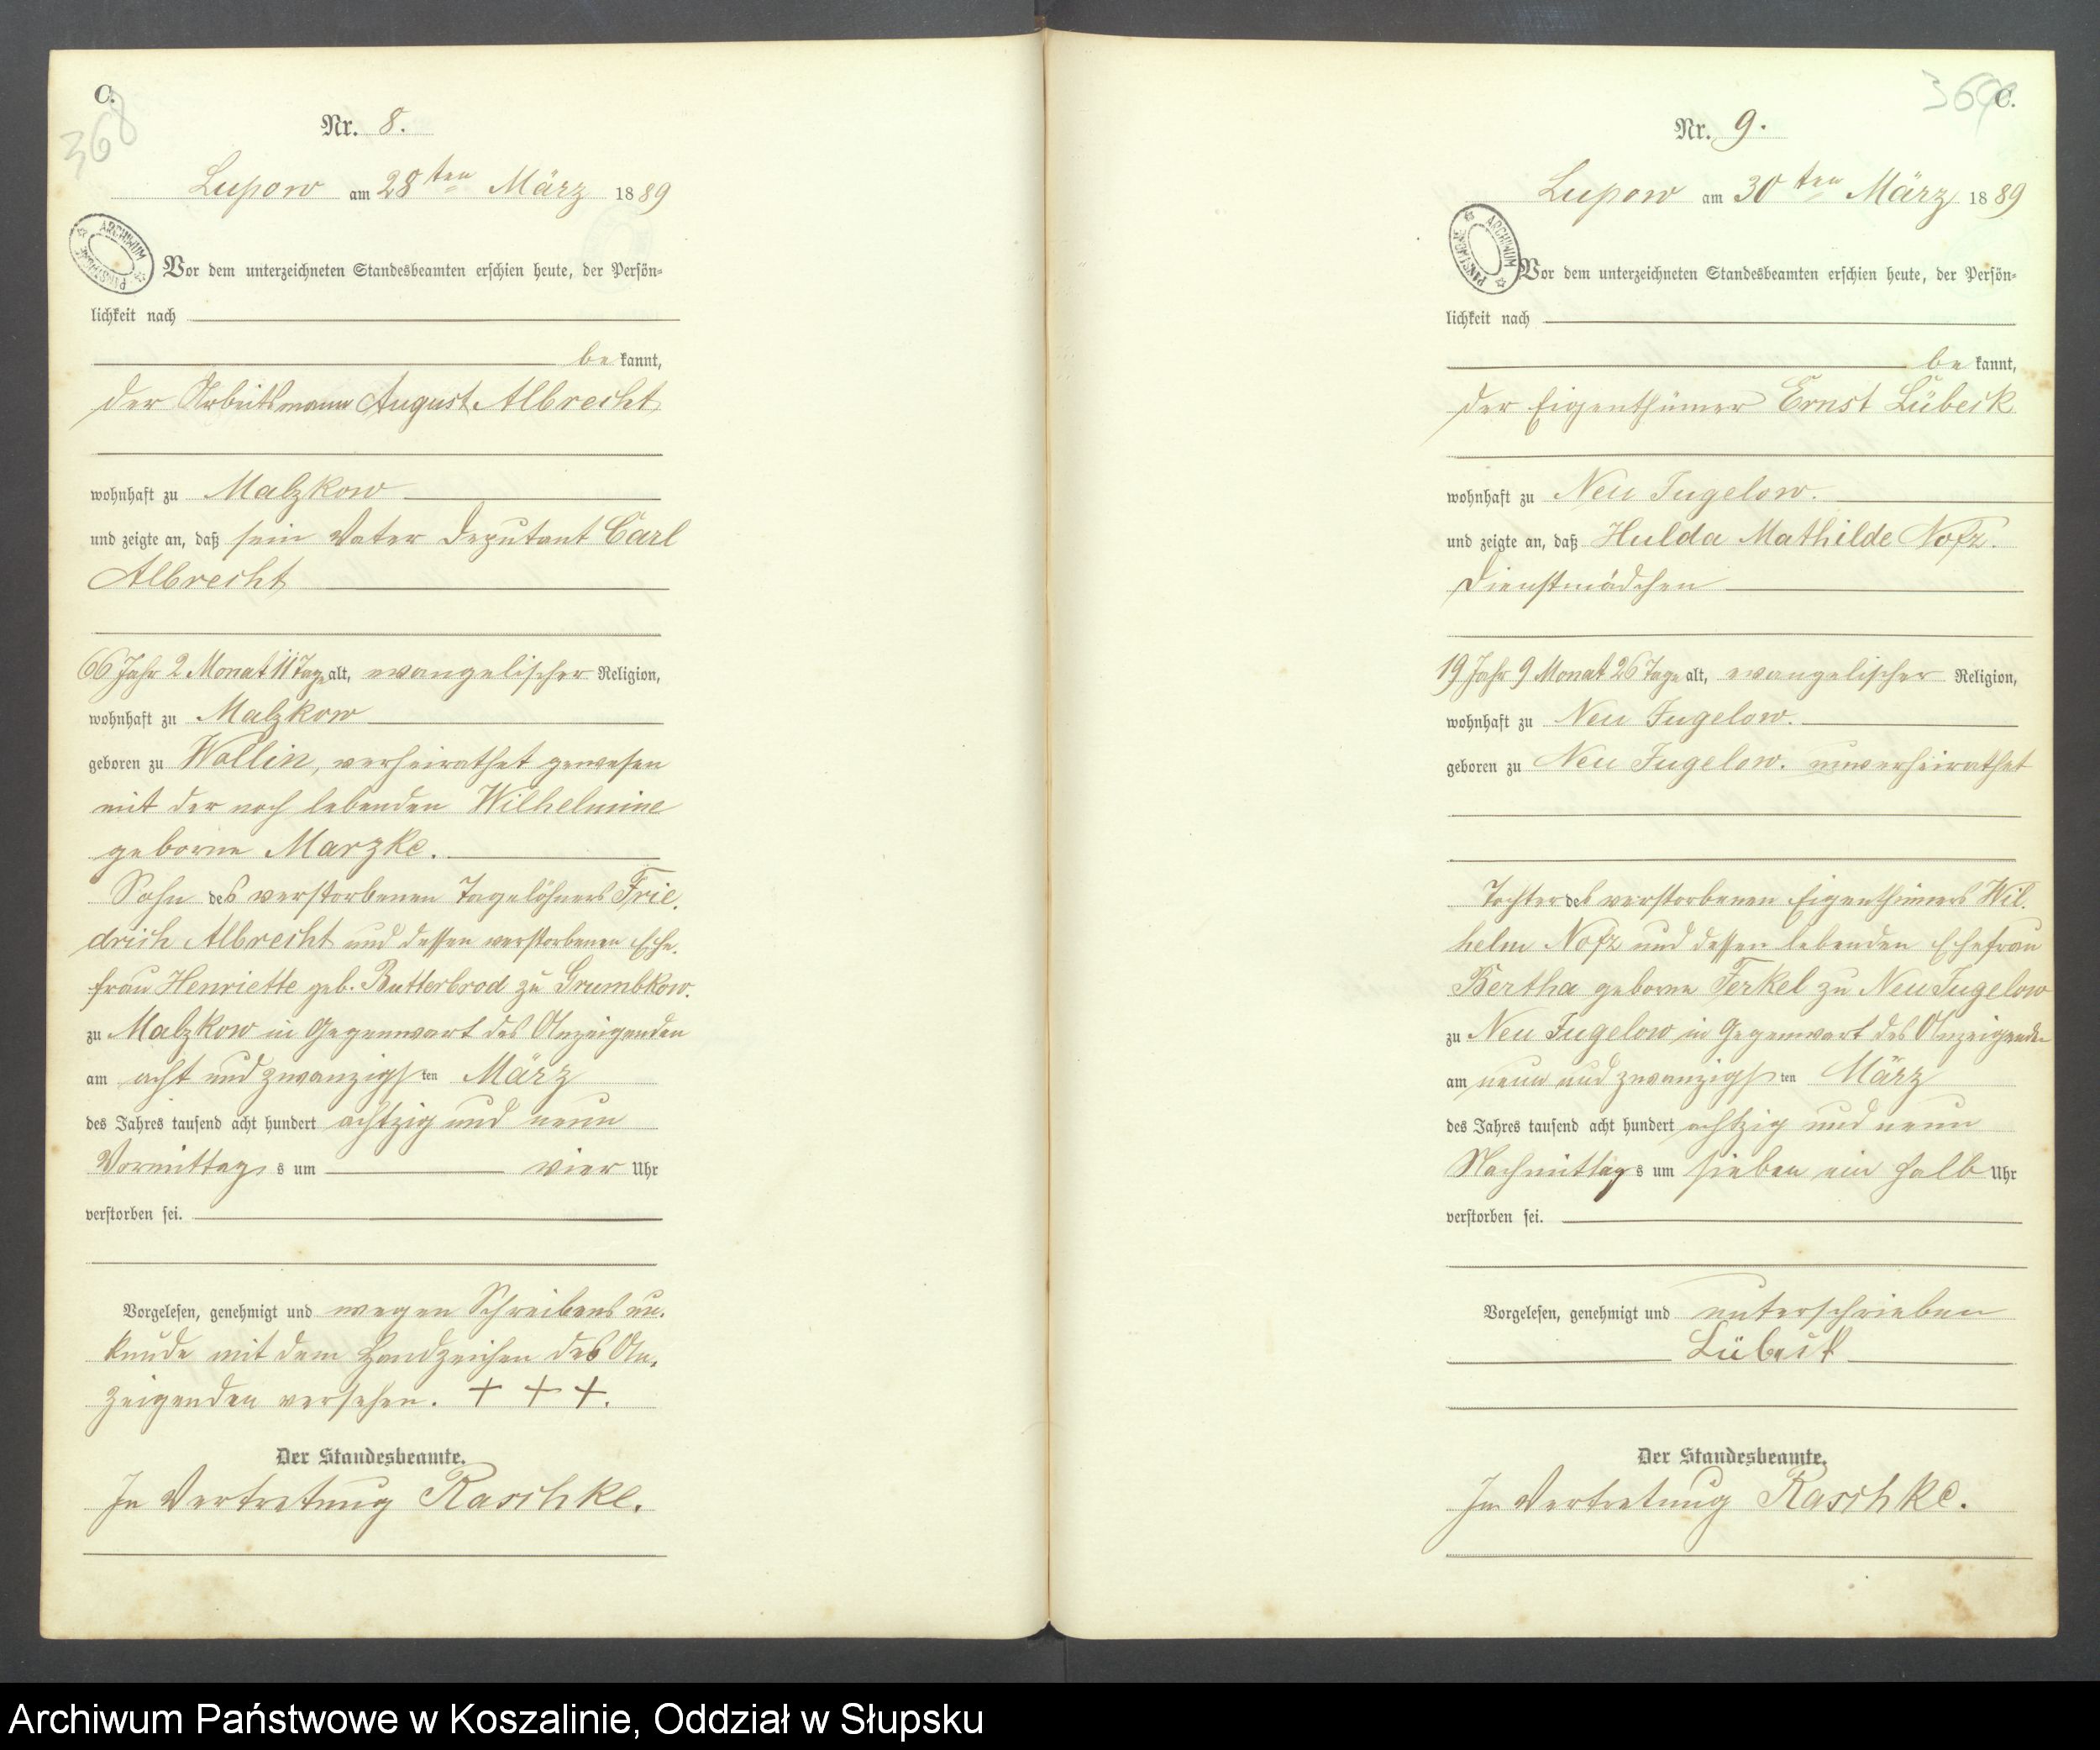 C.
368
Nr. 8.
Lupow am 28ten März 1889
ARCHIWUM PAŃSTWOWE
Vor dem unterzeichneten Standesbeamten erschien heute, der Persön-
lichkeit nach
be kannt,
der Arbeitsmann August Albrecht
wohnhaft zu Malzkow
und zeigte an, daß sein Vater Deputant Carl
Albrecht
66 Jahr 2 Monat 11 Tage alt, evangelischer Religion,
wohnhaft zu Malzkow
geboren zu Wollin, verheirathet gewesen
mit der noch lebenden Wilhelmine
geborne Marzke.
Sohn des verstorbenen Tagelöhners Frie-
drich Albrecht und dessen verstorbenen Ehe-
frau Henriette geb. Butterbrod zu Grumbkow.
zu Malzkow in Gegenwart des Anzeigenden
am acht und zwanzigsten März
des Jahres tausend acht hundert achtzig und neun
Vormittags um vier Uhr
verstorben sei.
Vorgelesen, genehmigt und wegen Schreibensun-
kunde mit dem Handzeichen des An-
zeigenden versehen. + + +.
Der Standesbeamte.
In Vertretung Raschke.
C.
369
Nr. 9.
Lupow am 30ten März 1889
ARCHIWUM PAŃSTWOWE
Vor dem unterzeichneten Standesbeamten erschien heute, der Persön-
lichkeit nach
be kannt,
der Eigenthümer Ernst Lübeck
wohnhaft zu Neu Jugelow.
und zeigte an, daß Hulda Mathilde Notz.
Dienstmädchen
19 Jahr 9 Monat 26 Tage alt, evangelischer Religion,
wohnhaft zu Neu Jugelow.
geboren zu Neu Jugelow. unverheirathet
Tochter des verstorbenen Eigenthümers Wil-
helm Notz und dessen lebenden Ehefrau
Bertha geborne Ferkel zu Neu Jugelow
zu Neu Jugelow in Gegenwart des Anzeigenden
am neun und zwanzigsten März
des Jahres tausend acht hundert achtzig und neun
Nachmittags um sieben ein halb Uhr
verstorben sei.
Vorgelesen, genehmigt und unterschrieben
Lübeck
Der Standesbeamte.
In Vertretung Raschke.
Archiwum Państwowe w Koszalinie, Oddział w Słupsku